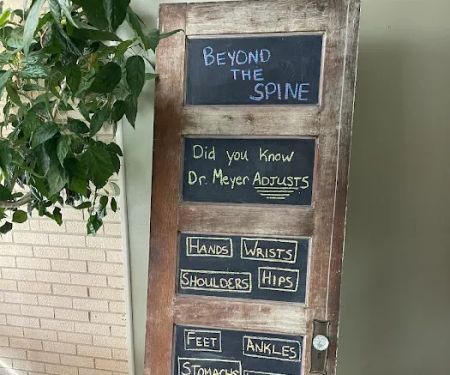 BEYOND
THE
SPINE
Did you Know
Dr. Meyer ADJUSTS
HANDS WRISTS
SHOULDERS HIPS
FEET ANKLES
STOMACHS